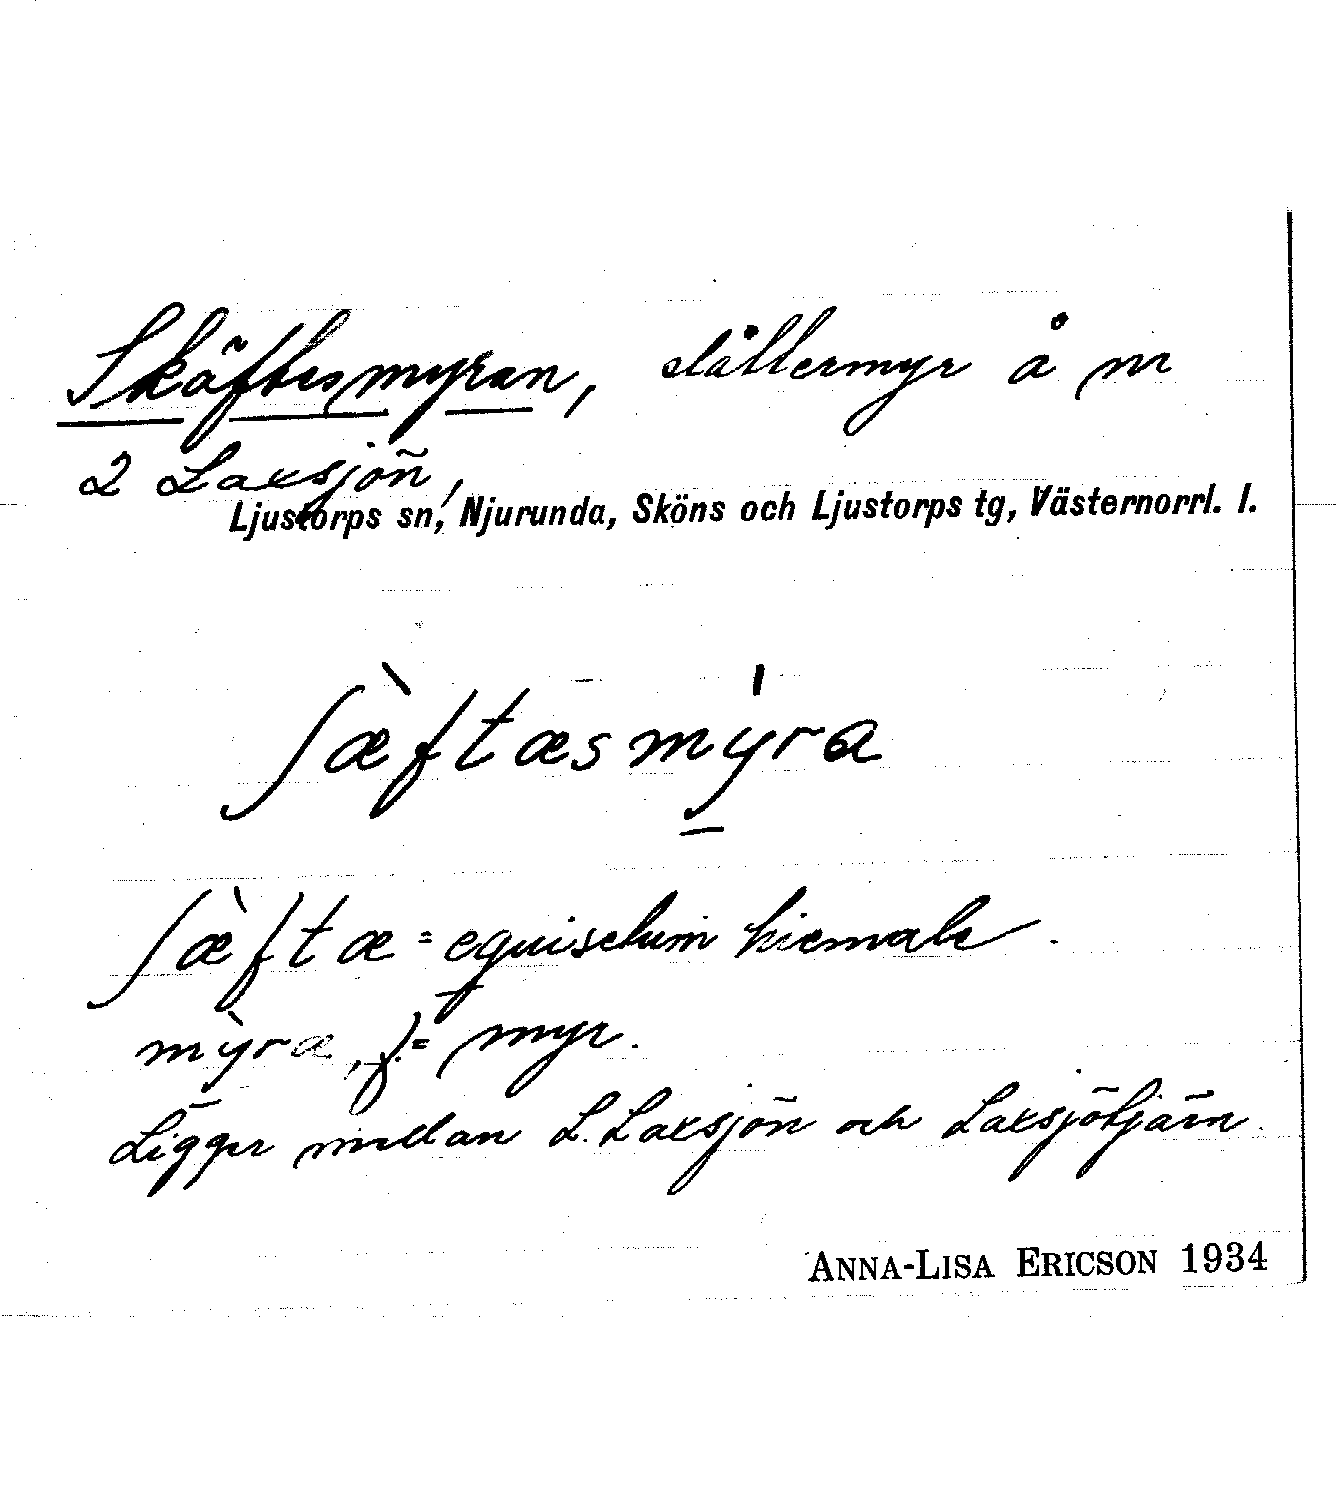 Skäftesmyran, slåttermyr å nr
2 Laxsjön,
Ljustorps sn, Njurunda, Sköns och Ljustorps tg, Västernorrl. l.
ʃæ̀ftæsmy̱̍ra
ʃæ̀ftæ = equisetum hiemale.
mỳ̱ra, f. = myr.
Ligger mellan L. Laxsjön och Laxsjötjärn.
ANNA-LISA ERICSON 1934